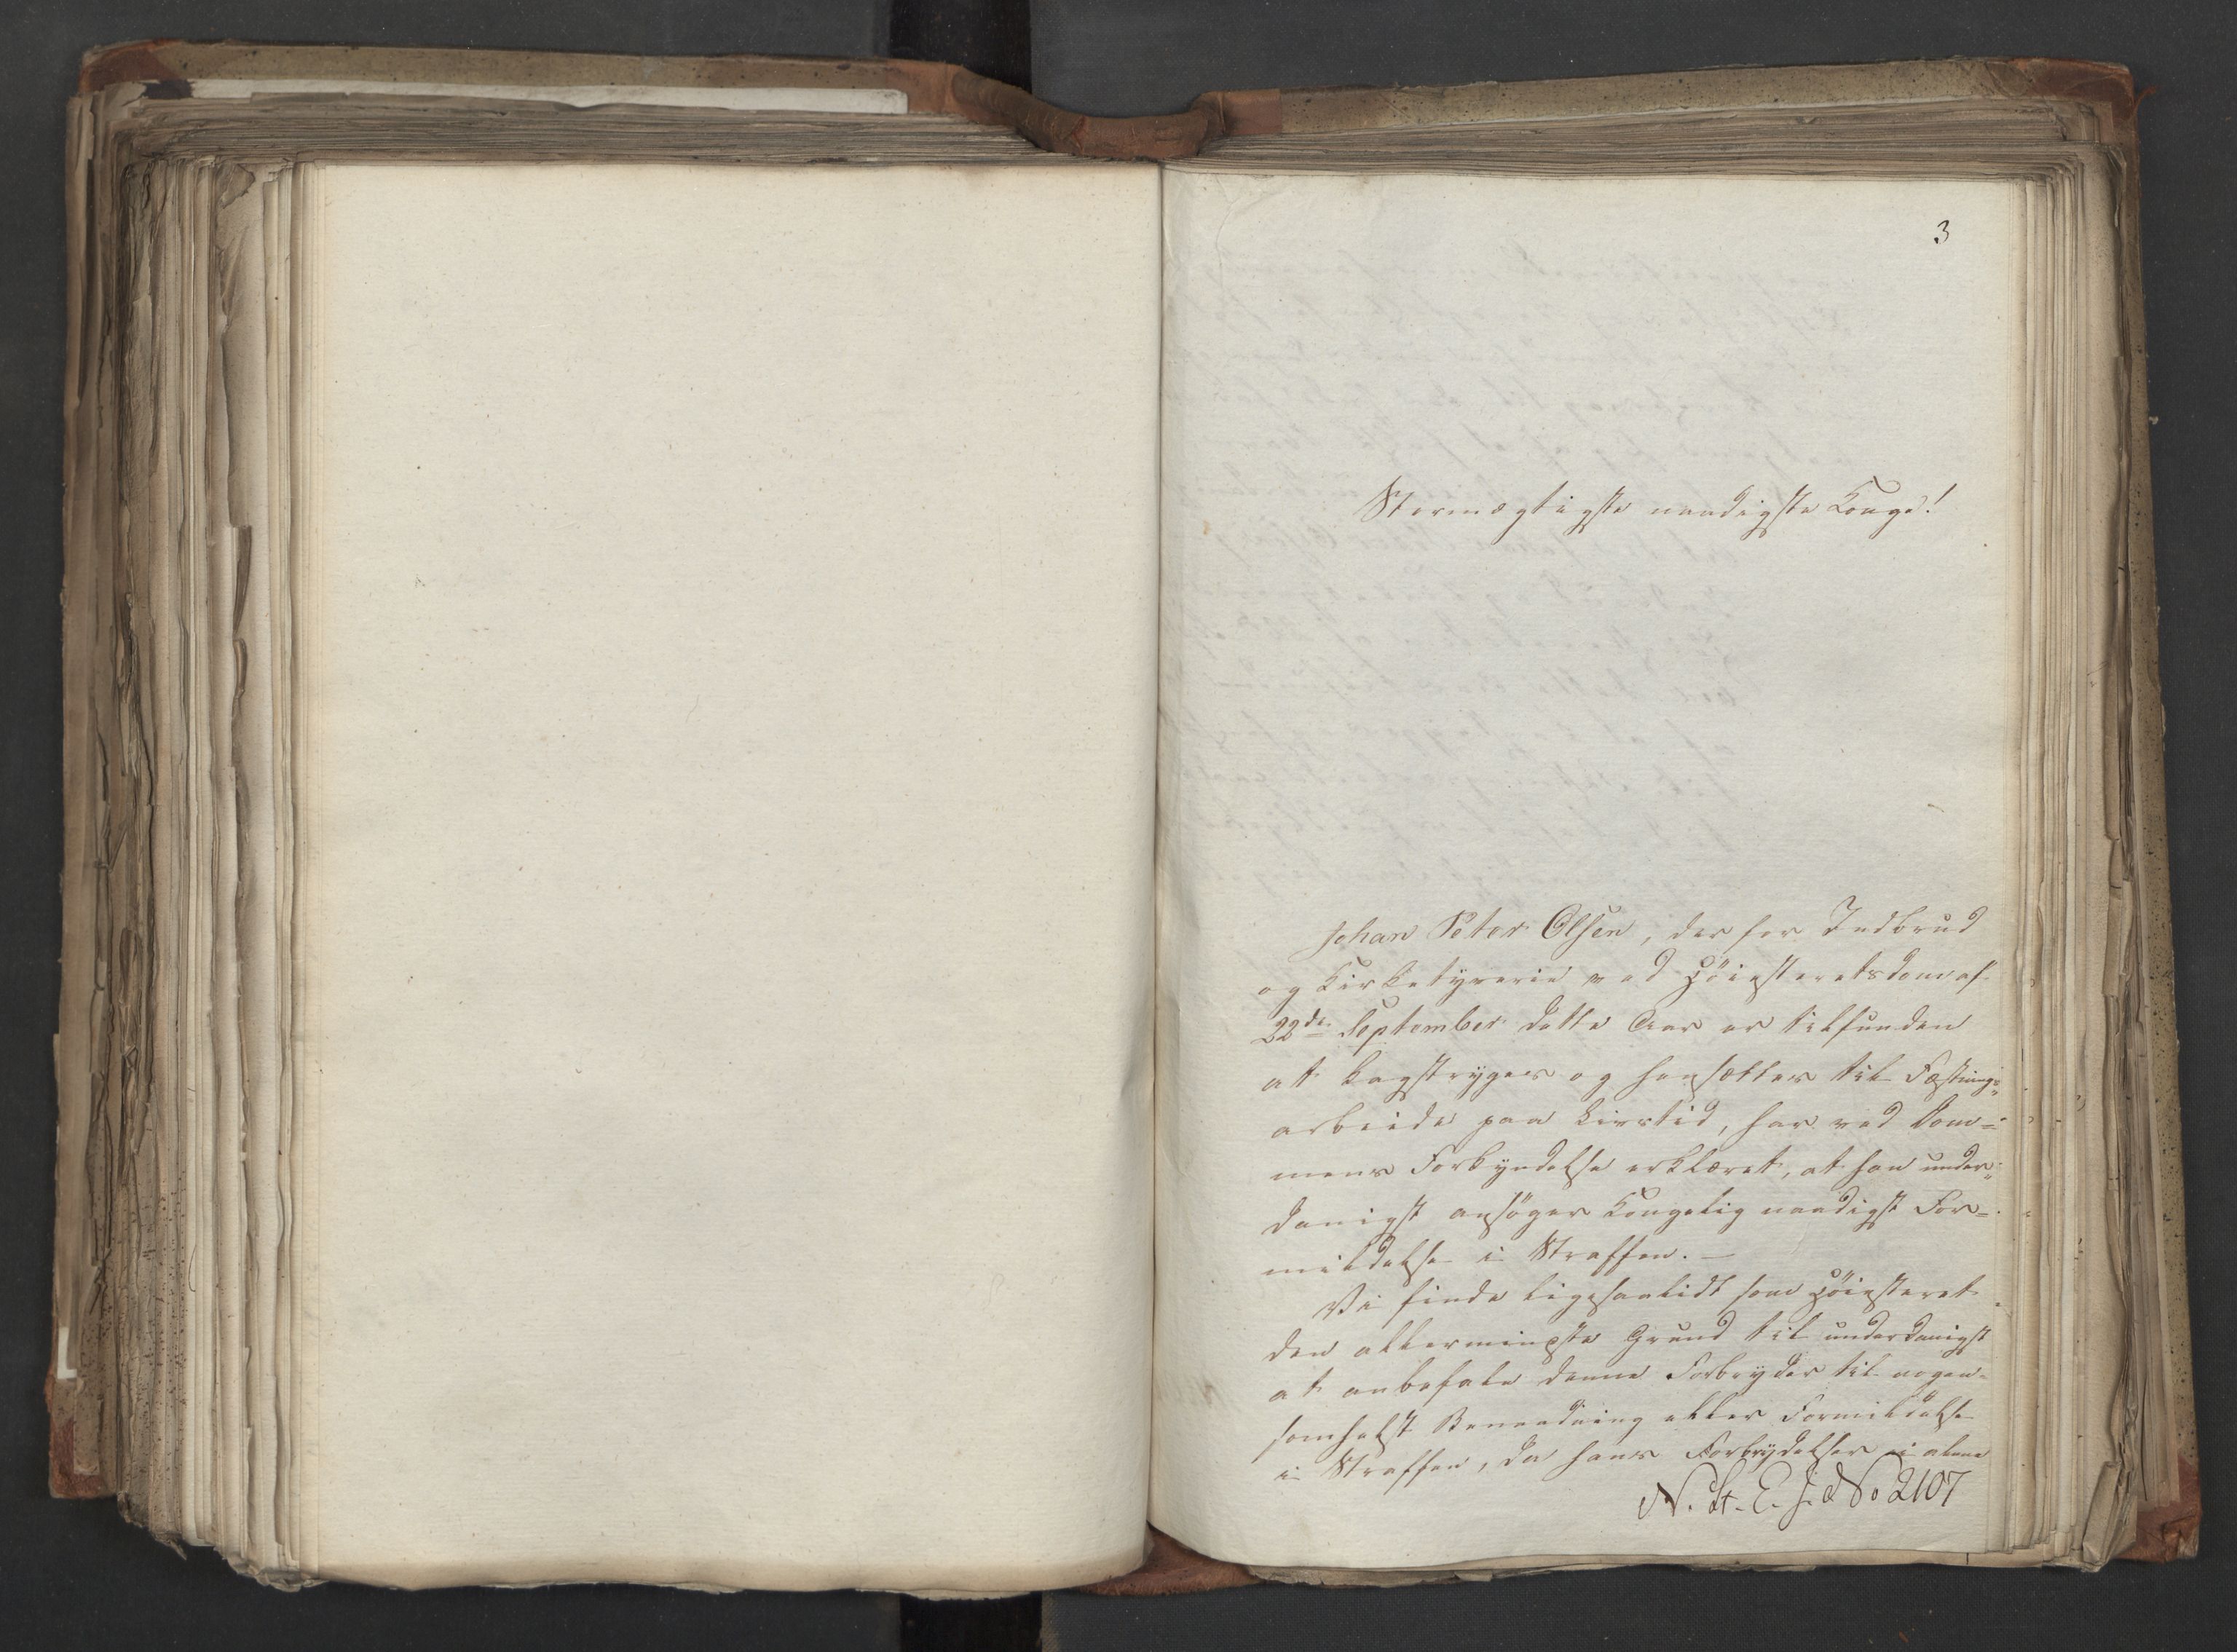 3
Stormægtigste naadigste Konge!
Johan Peter Olsen, der for Indbrud
og Kirketyverie ved Höiesteretsdom af
22de September dette Aar er tilfunden
at kagstryges og hensættes til Fæstnings-
arbeide paa Livstid, har ved Dom-
mens Forkyndelse erklæret, at han under-
danigst ansöger Kongelig naadigst For-
mildelse i Straffen. —
Vi finde ligesaalidt som Höiesteret
den allermindste Grund til underdanigst
at anbefale denne Forbryder til nogen-
somhelst Benaadning eller Formildelse
i Straffen, da hans Forbrydelser ei alene
N. St. E. J. No 2107